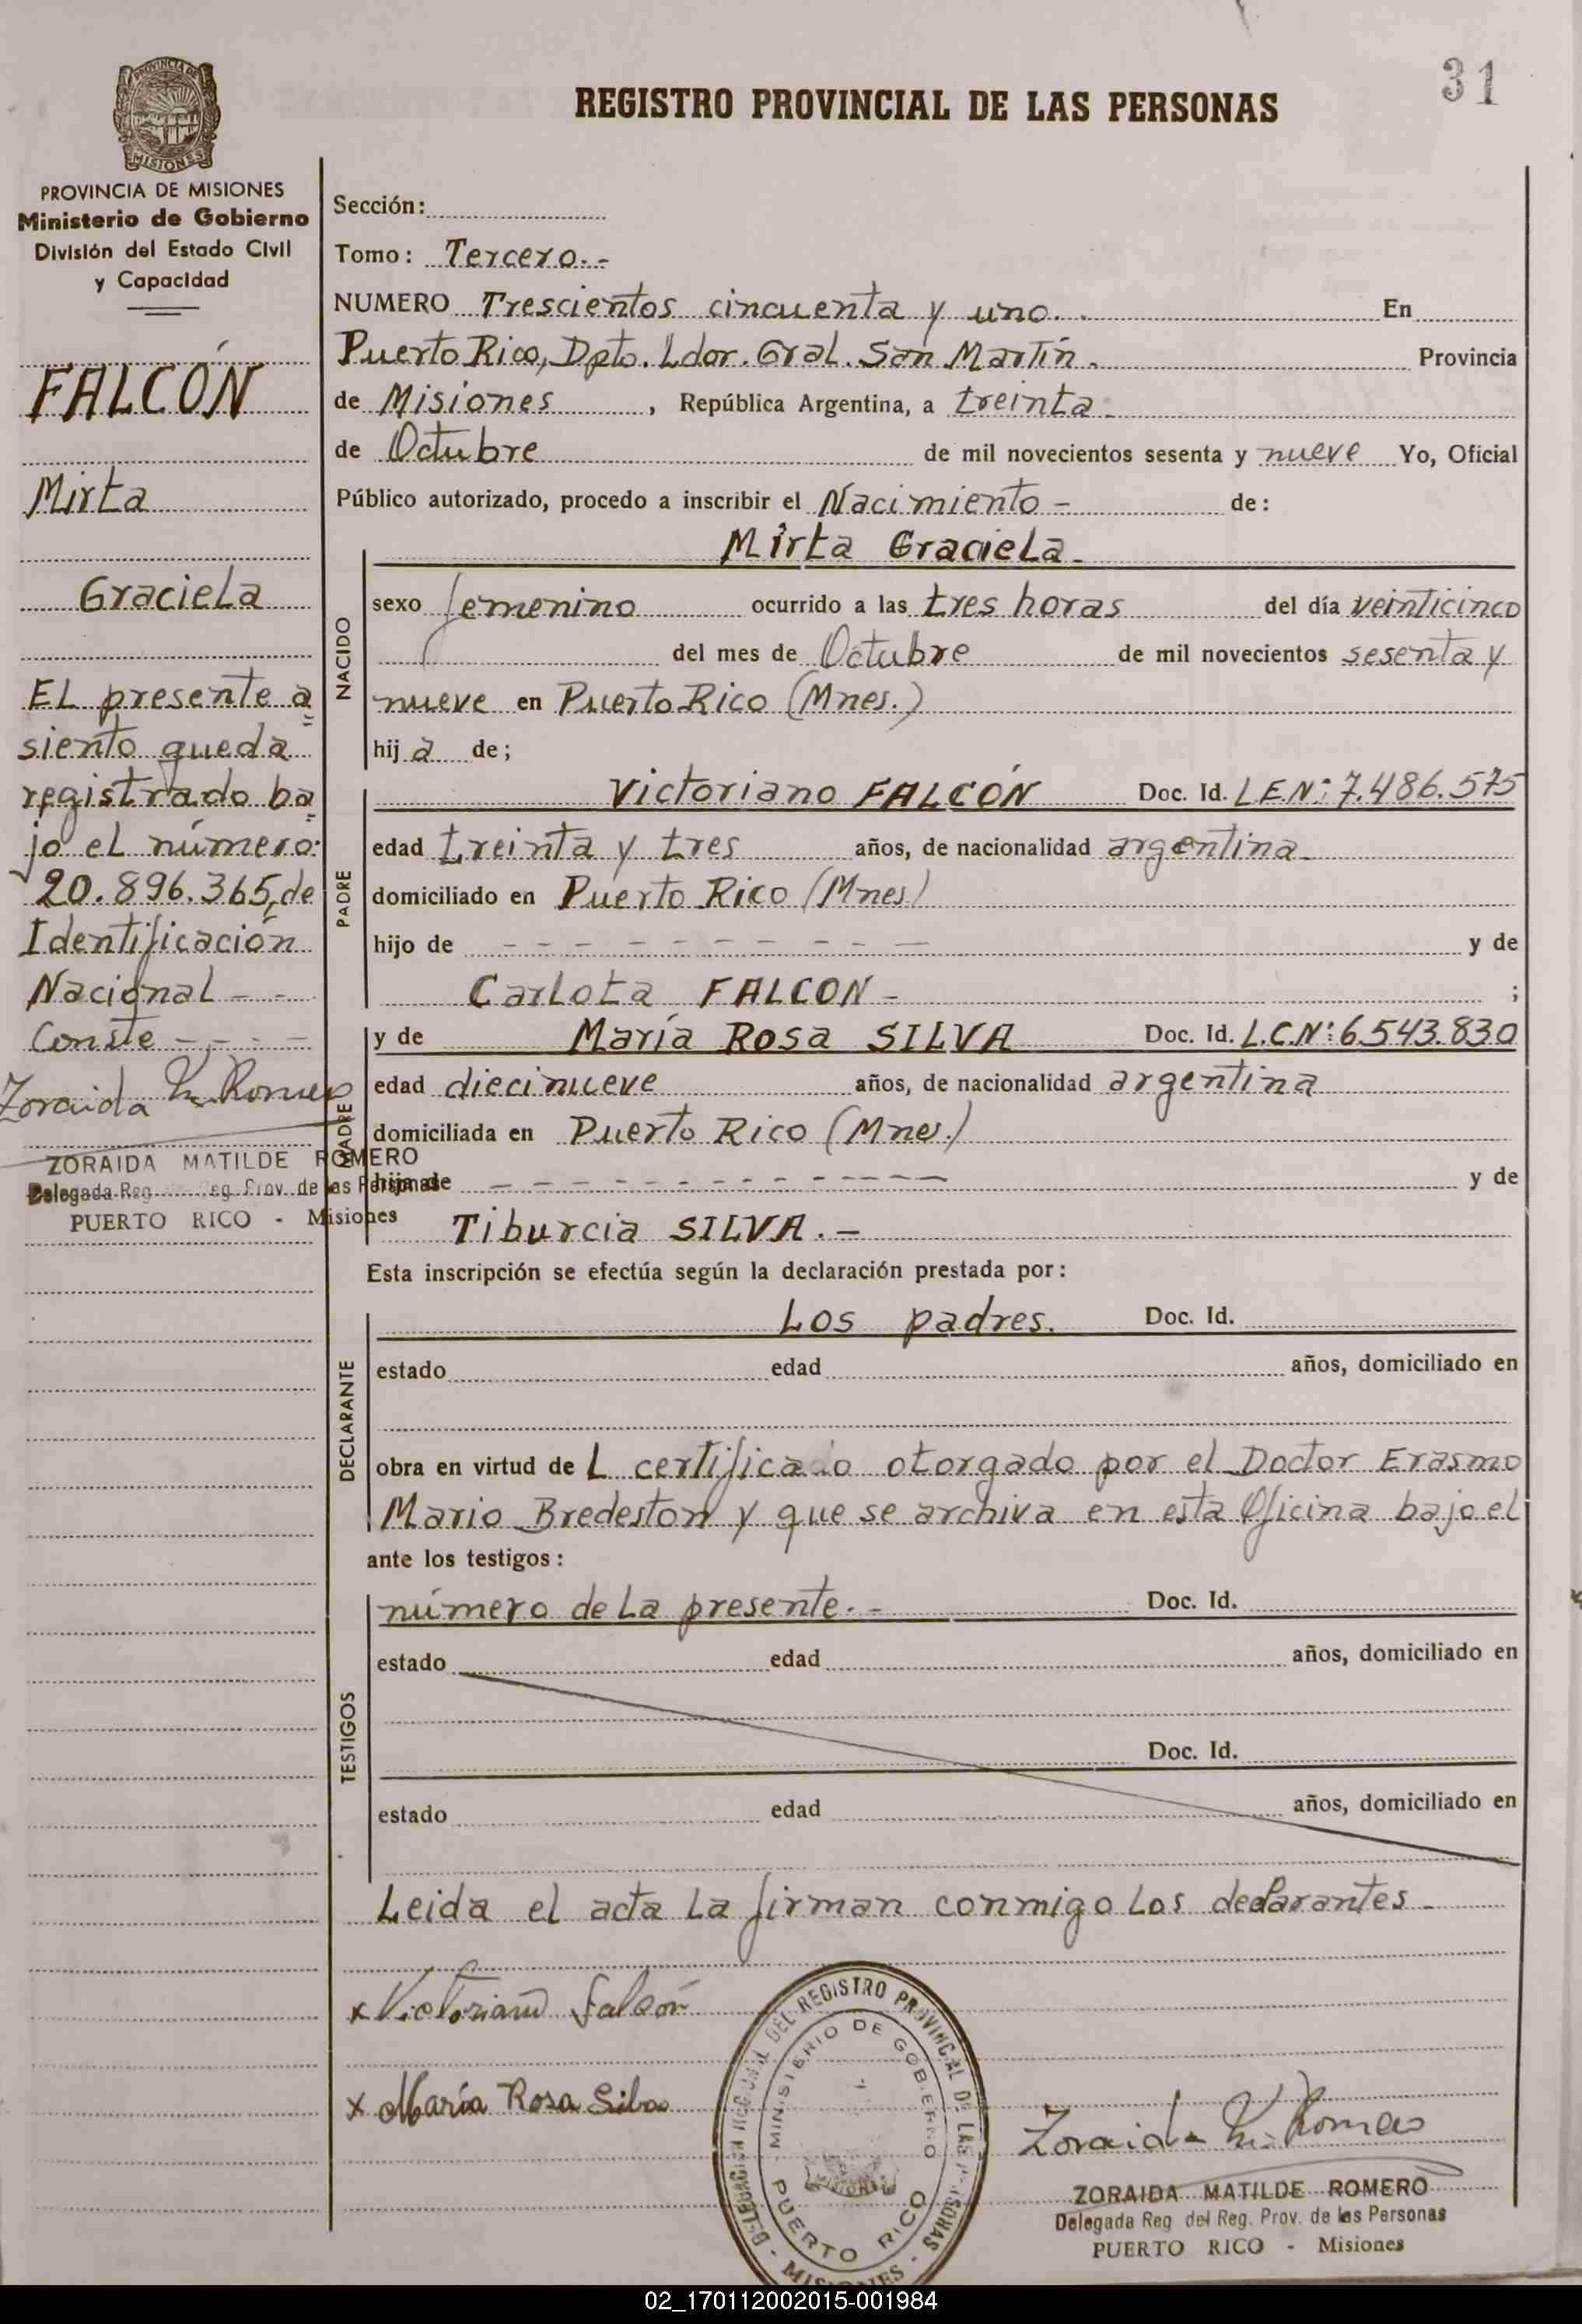 31
REGISTRO PROVINCIAL DE LAS PERSONAS
PROVINCIA DE MISIONES
MISIONES
PROVINCIA DE MISIONES
Ministerio de Gobierno
División del Estado Civil
y Capacidad
FALCÓN
Mirta
Graciela
EL presente a
siento queda
registrado ba
jo el número:
20.896.365, de
Identificación
Nacional - -
Conste - - - -
Zoraida M. Romero
ZORAIDA MATILDE ROMERO
Delegada Reg. Reg. Prov. de las Personas
PUERTO RICO - Misiones
Sección:
Tomo: Tercero.-
NUMERO Trescientos cincuenta y uno. . En
Puerto Rico, Dpto. Ldor. Gral. San Martín. Provincia
de Misiones , República Argentina, a treinta
de Octubre de mil novecientos sesenta y nueve Yo, Oficial
Público autorizado, procedo a inscribir el Nacimiento - de:
Mirta Graciela-
NACIDO
sexo femenino ocurrido a las tres horas del día veinticinco
del mes de Octubre de mil novecientos sesenta y
nueve en Puerto Rico (Mnes.)
hij a de;
Victoriano FALCÓN Doc. Id. L.E.N: 7.486.575
PADRE
edad treinta y tres años, de nacionalidad argentina-
domiciliado en Puerto Rico (Mnes)
hijo de - - - - - - - - - - y de
Carlota FALCON - ;
MADRE
y de María Rosa SILVA Doc. Id. L.C.N: 6.543.830
edad diecinueve años, de nacionalidad argentina
domiciliada en Puerto Rico (Mnes.)
hija de - - - - - - - - - - - y de
Tiburcia SILVA . -
Esta inscripción se efectúa según la declaración prestada por:
DECLARANTE
Los padres. Doc. Id.
estado edad años, domiciliado en
obra en virtud de L certificado otorgado por el Doctor Erasmo
Mario Bredeston y que se archiva en esta Oficina bajo el
ante los testigos:
TESTIGOS
número de La presente. - Doc. Id.
estado edad años, domiciliado en
Doc. Id.
estado edad años, domiciliado en
Leida el acta La firman conmigo Los declarantes-
x Victoriano Falcón
x María Rosa Silva
DELEGACION REGIONAL DEL REGISTRO PROVINCIAL DE LAS PERSONAS - MISIONES -
MINISTERIO DE GOBIERNO
PUERTO RICO
Zoraida M. Romero
ZORAIDA MATILDE ROMERO
Delegada Reg del Reg. Prov. de las Personas
PUERTO RICO - Misiones
02_170112002015-001984